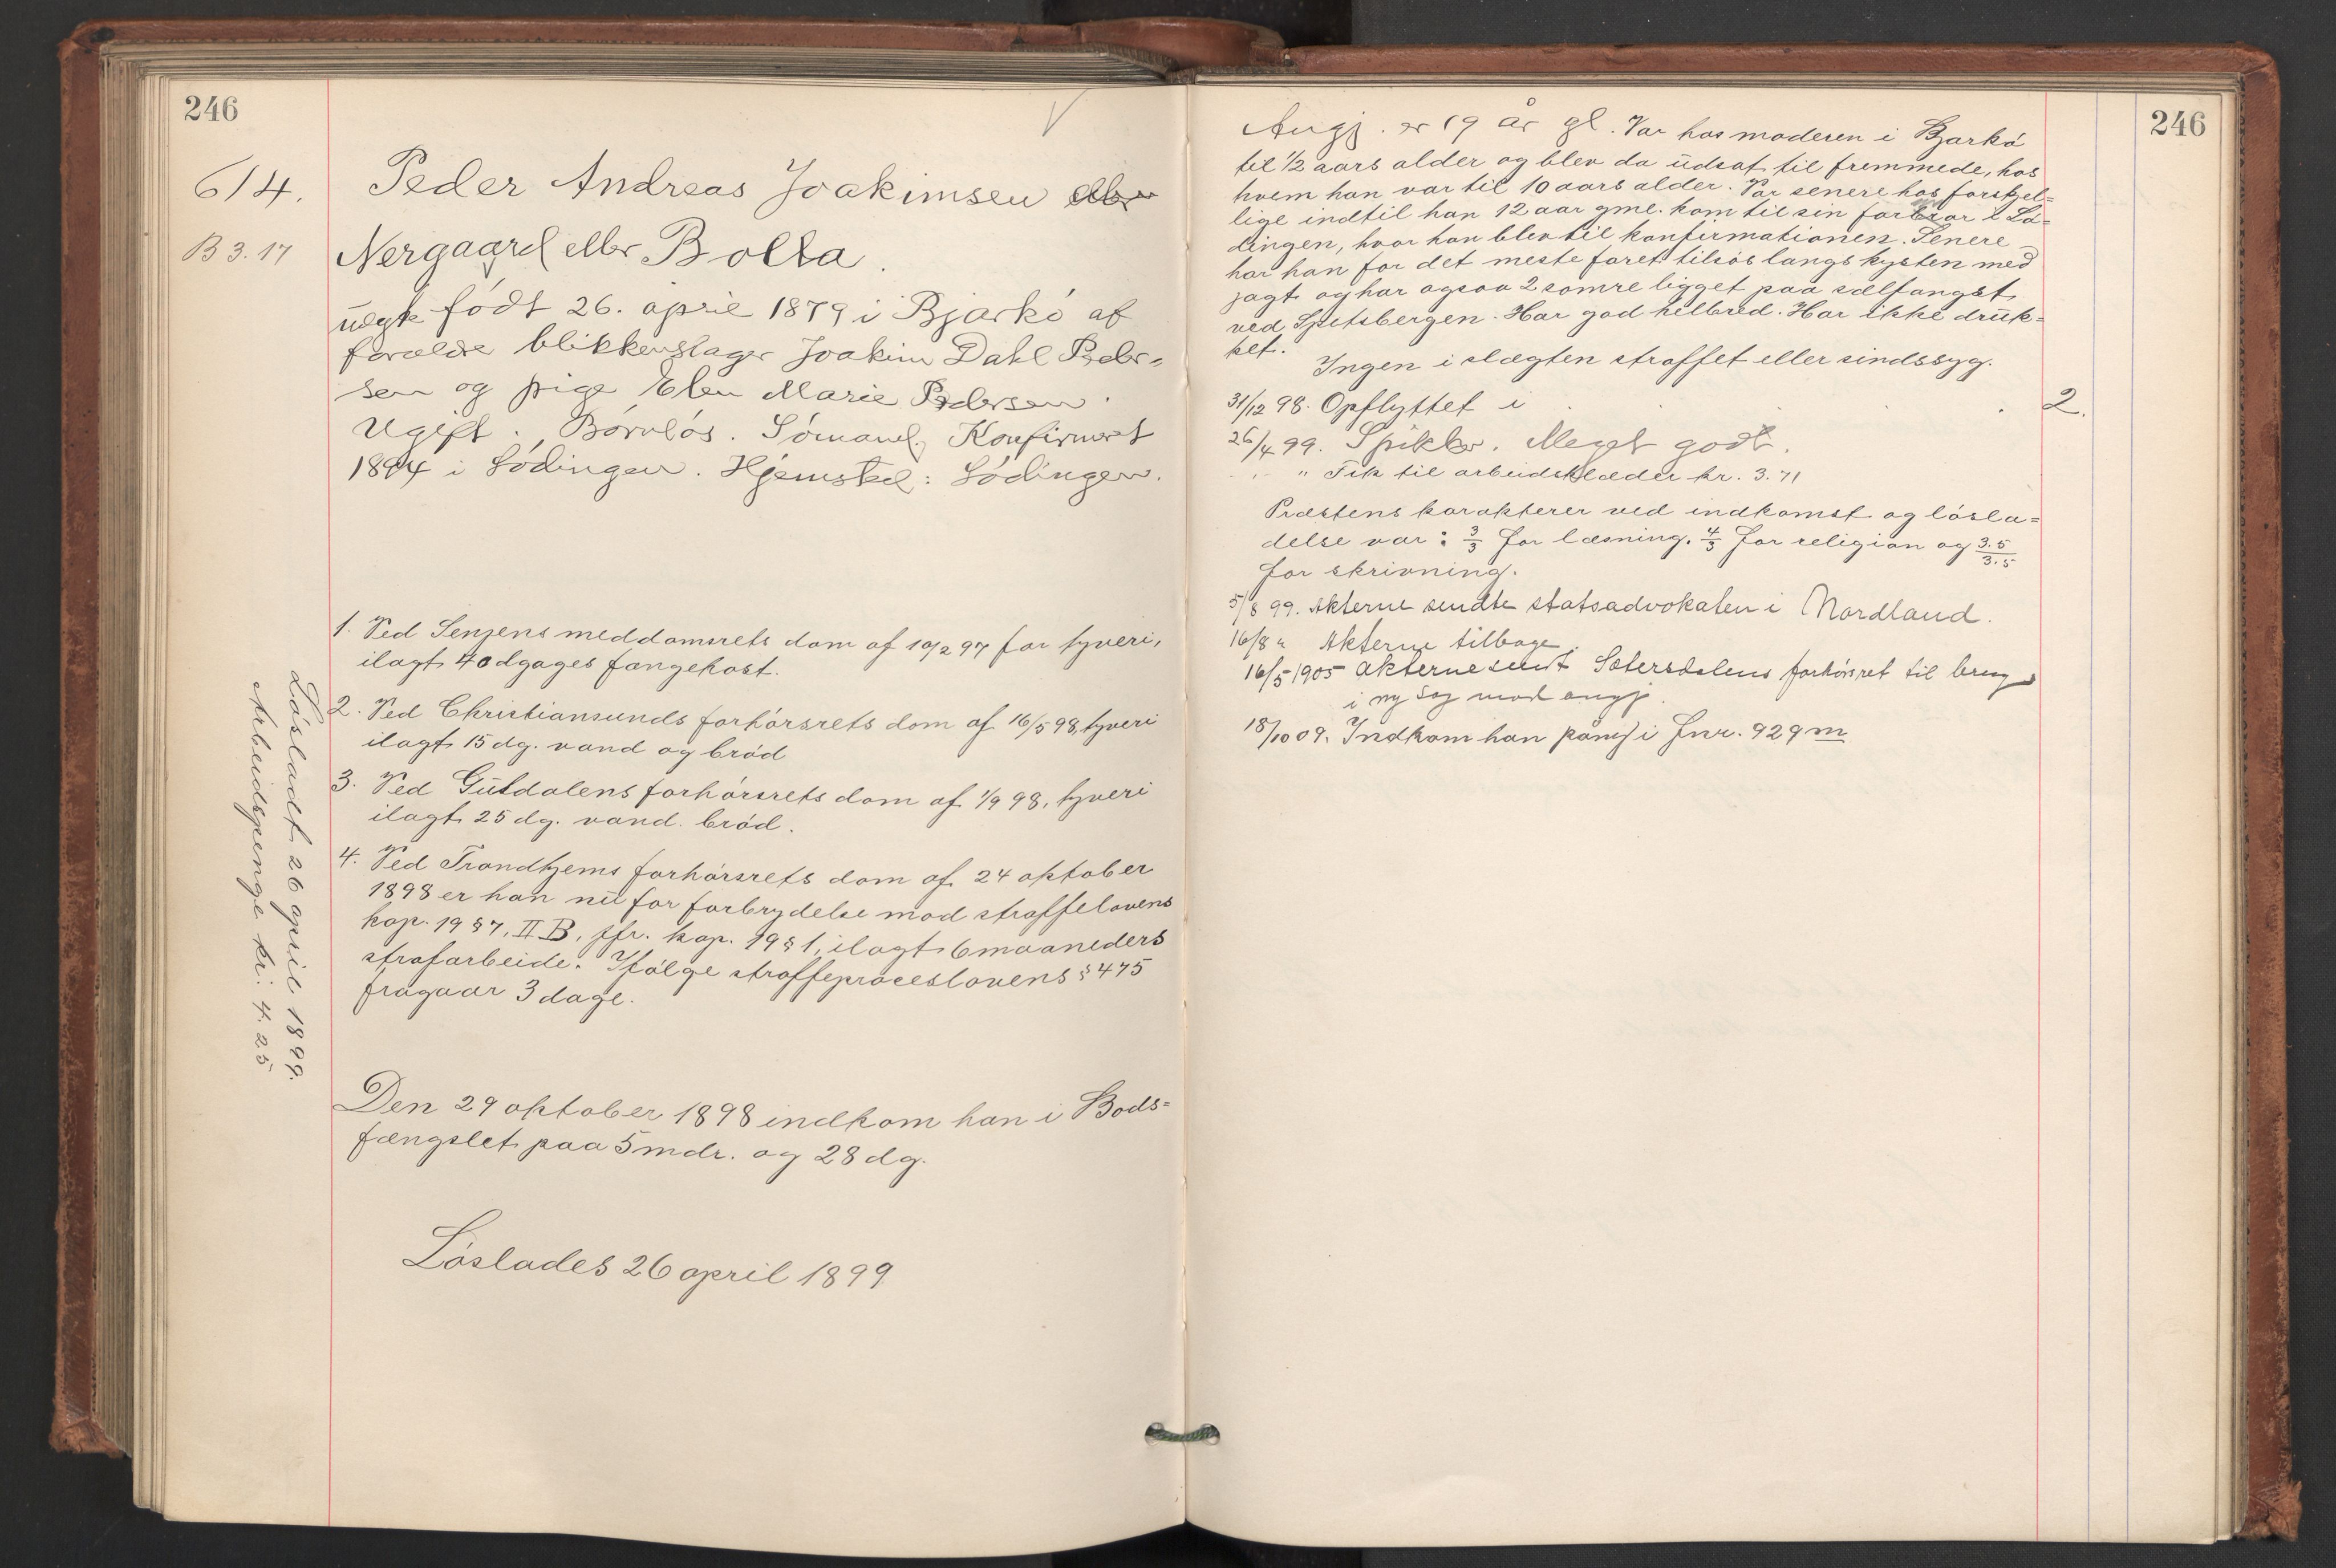 246
614.
B 3.17
Peder Andreas Joakimsen eller
Nergaard eller Bolla.
uægte født 26. april 1879 i Bjarkö af
forældre blikkenslager Joakim Dahl Peder-
sen og pige Elen Marie Pedersen.
Ugift. Barnløs. Sömand. Konfirmeret
1894 i Lödingen. Hjemsted: Lödingen.
1. Ved Senjens meddomsrets dom af 10/2 97 for tyveri,
ilagt 40 dgages fangekost.
2. Ved Christiansunds forhörsrets dom af 16/5 98, tyveri
ilagt 15 dg. vand og bröd
3. Ved Guldalens forhörsrets dom af 1/9 98, tyveri
ilagt 25 dg. vand. bröd.
4. Ved Trondhjems forhörsrets dom af 24 oktober
1898 er han nu for forbrydelse mod straffelovens
kap. 19 § 7, II B, jfr. kap. 19 § 1, ilagt 6 maaneders
strafarbeide. Ifölge straffeproceslovens § 475
fragaar 3 dage.
Lösladt 26 april 1899.
Arbeidspenge kr: 4.25
Den 29 oktober 1898 indkom han i Bods=
fængslet paa 5 mdr. og 28 dg.
Löslades 26 april 1899
246
Angj. er 19 år gl. Var hos moderen i Bjarkö
til 1/2 aars alder og blev da udsat til fremmede, hos
hvem han var til 10 aars alder. Var senere hos forskjel=
lige indtil han 12 aar gml. kom til sin farbror i Lö=
dingen, hvor han blev til konfirmationen. Senere
har han for det meste faret tilsös langs kysten med
jagt og har ogsaa 2 somre ligget paa sælfangst
ved Spitsbergen. Har god helbred. Har ikke druk=
ket.
Ingen i slægten straffet eller sindssyg.
31/12 98. Opflyttet i 2.
26/4 99. Spikker. Meget godt.
" Fik til arbeidsklæder kr. 3.71
Præstens karakterer ved indkomst og lösla=
delse var: 3/3 for læsning, 4/3 for religion og 3.5/3.5
for skrivning.
5/8 99. Akterne sendte statsadvokaten i Nordland.
16/8 " Akterne tilbage.
16/5 1905 Akterne sendt Sætersdalens forhörsret til brug
i ny sag mod angj.
18/10 09. Indkom han påny i Fnr. 929 m